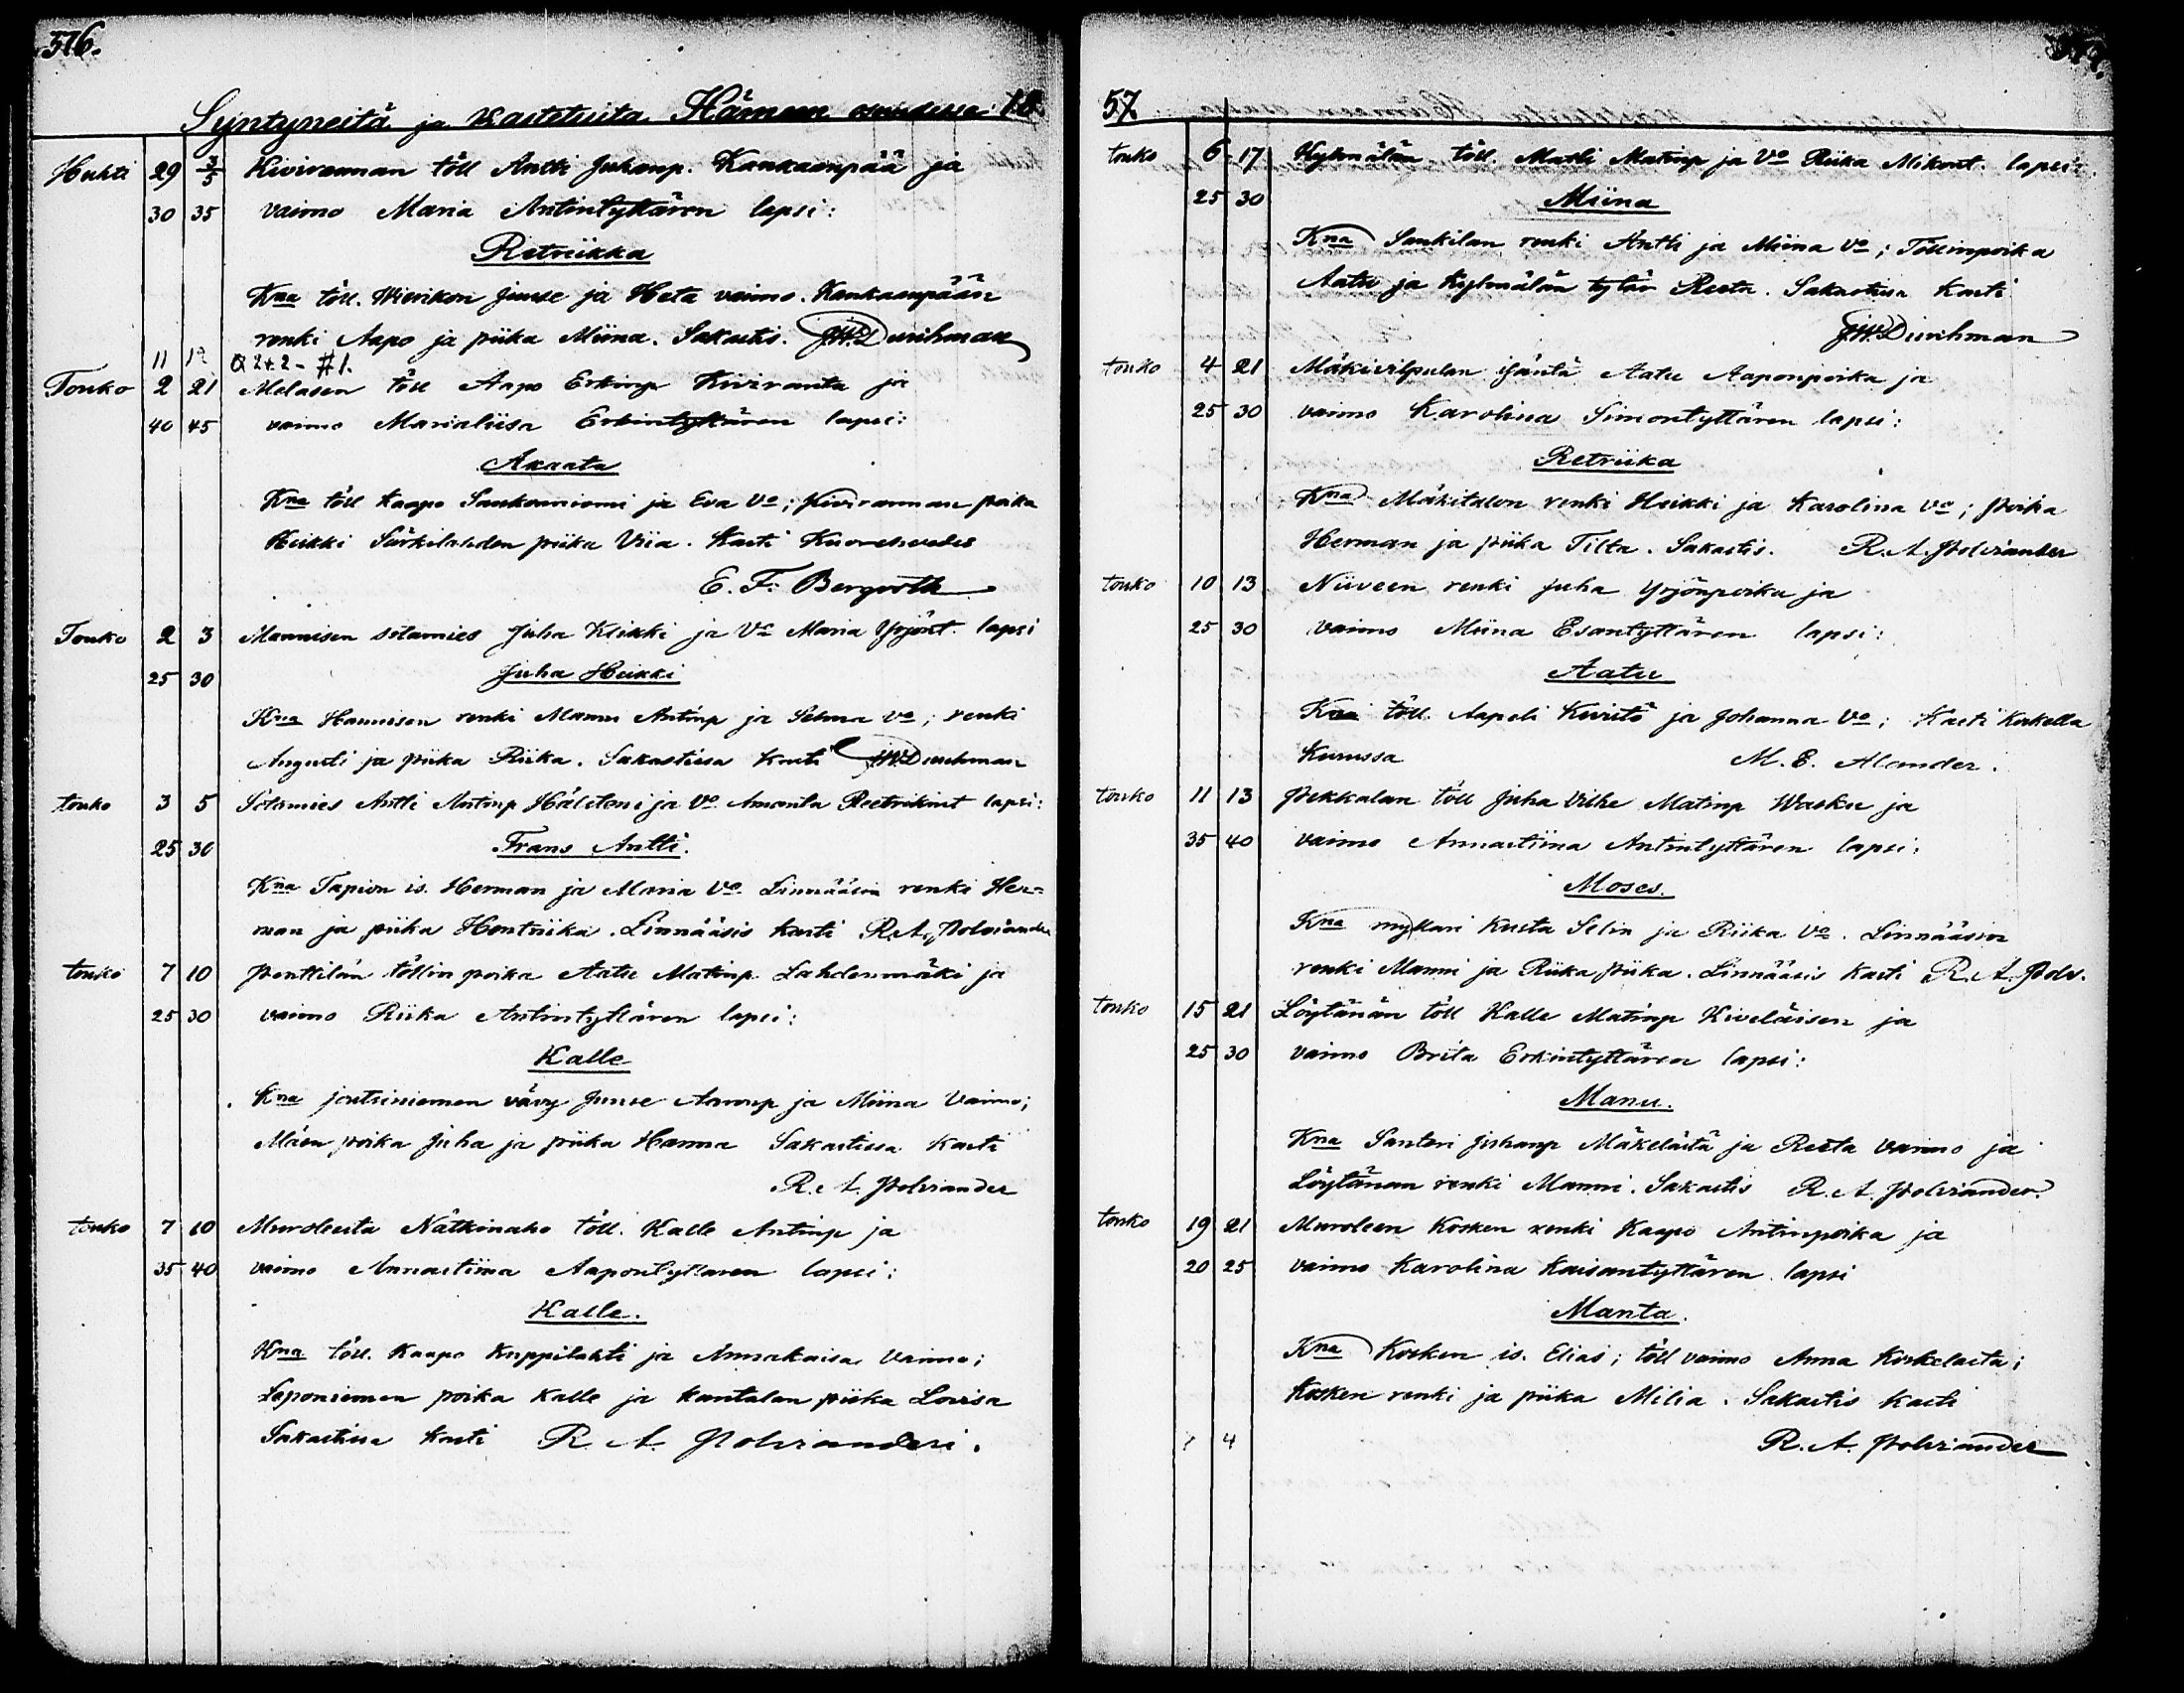 576.
Syntyneitä ja Kastetuita Hämeen osuudessa 18
Huhti 29 3/5 Kivirannan töll Antti Juhanp. Kankaanpää ja
30 35 vaimo Maria Antintyttären lapsi:
Retriikka
Kna töll. Wierikon Juuse ja Heta vaimo. Kankaanpään
renki Aapo ja piika Miina. Sakastis. J.W. Durchman
11 12 Q 2+2 - #1.
Touko 2 21 Melasen töll Aapo Erkinp Kiviranta ja
40 45 vaimo Marialiisa Erkintyttären lapsi:
Akaata
Kna töll Kaapo Sankarniemi ja Eva Vo; Kivirannan poika
Heikki Särkilahden piika Viia. Kasti Kuorehvedes
E. F. Bergroth
Touko 2 3 Mannisen sotamies Juha Klikki ja Vo Maria Yrjönt. lapsi
25 30 Juha Heikki
Kna Hannisen renki Mannu Antinp ja Selma Vo; renki
Augusti ja piika Riika. Sakastissa kasti J.W. Durchman
touko 3 5 Sotamies Antti Antinp Hälsteni ja Vo Amanta Reetrikint lapsi:
25 30 Frans Antti.
Kna Tapion is. Herman ja Maria Vo. Linnääsin renki Her=
man ja piika Hentriika. Linnääsis kasti R. A. Polviander
touko 7 10 Penttilän töllin poika Aatu Matinp. Lahdenmäki ja
25 30 vaimo Riika Antintyttären lapsi:
Kalle
Kna joutsiniemen vävy Juuse Aaronp ja Miina Vaimo;
Mäen poika Juha ja piika Hanna Sakastissa kasti
R. A. Polviander
touko 7 10 Muroleesta Nätkinaho töll. Kalle Antinp ja
35 40 vaimo Annastiina Aapontyttären lapsi:
Kalle.
Kna töll. Kaapo Kuppilahti ja Annakaisa Vaimo;
Leponiemen poika Kalle ja kantalan piika Lovisa
Sakastissa kasti R. A. Polvianderi.
57
touko 6 17 Kylmälän töll. Matti Matinp ja Vo Riika Mikont. lapsi:
25 30 Miina
Kna Sankilan renki Antti ja Miina Vo; Töllinpoika
Aatu ja Kylmälän tytär Reeta. Sakastissa kasti
J.W. Durchman
touko 4 21 isäntä Aatu Aaponpoika ja
25 30 vaimo Karolina Simontyttären lapsi:
Retriika
Kna Mäkitalon renki Heikki ja Karolina Vo; poika
Herman ja piika Tilta. Sakastis. R. A. Polviander
touko 10 13 Niiveen renki Juha Yrjönpoika ja
25 30 vaimo Miina Esantyttären lapsi:
Aatu
Kna töll. Aapeli Kiviitö ja Johanna Vo; Kasti kirkolla
Kurussa M. E. Alander.
touko 11 13 Pekkalan töll Juha Vilhe Matinp Wasku ja
35 40 vaimo Annastiina Antintyttären lapsi:
Moses.
Kna mylläri Kusta Selin ja Riika Vo. Linnääsin
renki Manni ja Riika piika. Linnääsis kasti R. A. Polv.
touko 15 21 Löytänän töll Kalle Matinp Kiveläisen ja
25 30 vaimo Brita Erkintyttären lapsi:
Manu.
Kna Santeri Juhanp Mäkelästä ja Reeta vaimo ja
Löytänän renki Manni. Sakastis R. A. Polviander.
touko 19 21 Muroleen Kosken renki Kaapo Antinpoika ja
20 25 vaimo Karolina Kaisantyttären lapsi
Manta.
Kna Kosken is. Elias; töll vaimo Anna Koskelasta;
Kosken renki ja piika Milia. Sakastis kasti
7 4 R. A. Polviander